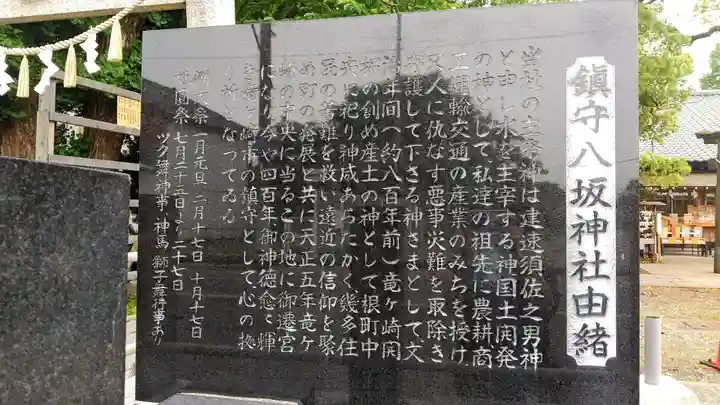 鎮守八坂神社由緒
当社の主祭神は建速須佐之男神
と申し水を主宰する神国土開発
の神として、私達の祖先に農耕商
工運輸交通の産業のみちを授け、
又人に仇なす悪事災難を取除き
守護して下さる神さまとして、文
治年間(約八百年前)竜ヶ崎開
拓の創め産土の神として根町中
央に祀り神威あらたかく幾多住
民の苦難を救い遠近の信仰を聚
め町の発展と共に天正五年竜ヶ
崎の中央に当るこの地に御遷宮
になり今や四百年、御神徳愈々輝
き竜ヶ崎市の鎮守として、心の拠
り所となってゐる
例祭 一月元旦 二月十七日 十月十七日
祇園祭 七月二十五日より二十七日
ツク舞神事・神馬 獅子舞行事あり